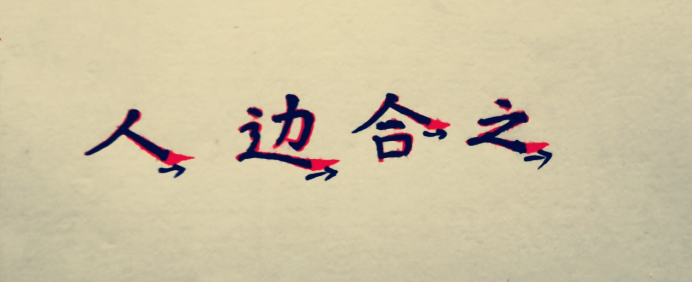 人边合之